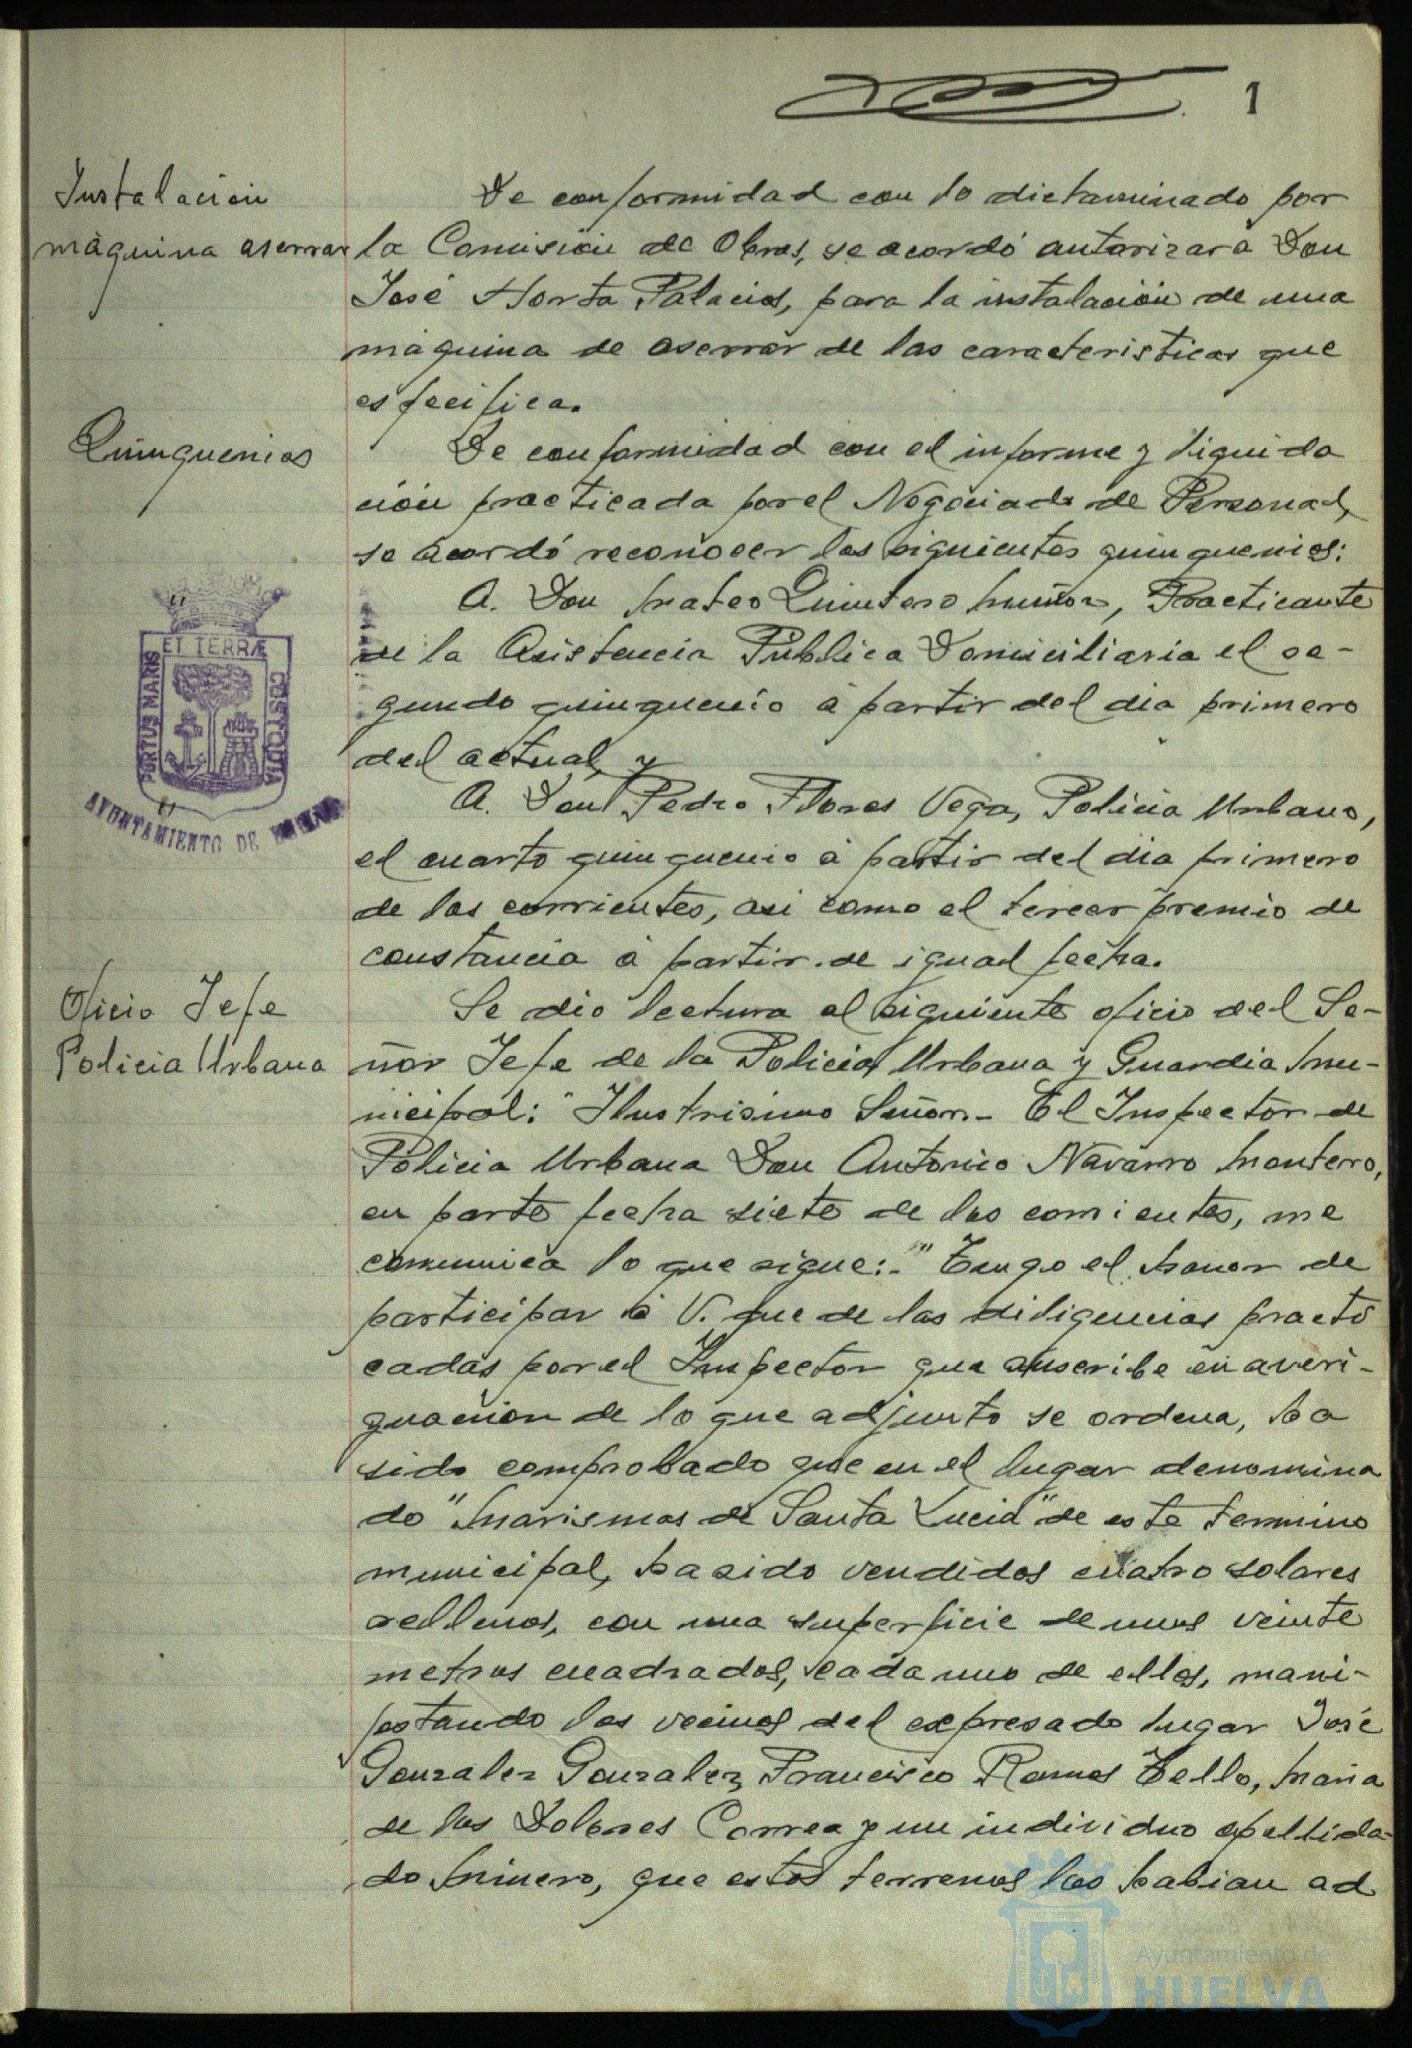 1
Instalación
máquina aserrar
De conformidad con lo dictaminado por
la Comisión de Obras, se acordó autorizar a Don
José Horta Palacios, para la instalación de una
máquina de aserrar de las caracteristicas que
especifica.
Quinquenios
De conformidad con el informe y liquida
ción practicada por el Negociado de Personal,
se acordó reconocer los siguientes quinquenios:
A. Don Mateo Quintero Muñoz, Practicante
de la Asistencia Pública Domiciliaria el se-
gundo quinquenio á partir del dia primero
del actual, y
A. Don Pedro Flores Vega, Policia Urbano,
el cuarto quinquenio á partir del dia primero
de los corrientes, asi como el tercer premio de
constancia á partir de igual fecha.
PORTUS MARIS
ET TERRÆ
CUSTODIA
AYUNTAMIENTO DE HUELVA
Oficio Jefe
Policia Urbana
Se dio lectura al siguiente oficio del Se-
ñor Jefe de la Policia Urbana y Guardia Mu-
nicipal: "Ilustrisimo Señor.- El Inspector de
Policia Urbana Don Antonio Navarro Montero,
en parte fecha siete de los corrientes, me
comunica lo que sigue:-"Tengo el honor de
participar á V. que de las diligencias practi
cadas por el Inspector que suscribe en averi-
guación de lo que adjunto se ordena, ha
sido comprobado que en el lugar denomina
do "Marismas de Santa Lucia" de este termino
municipal, ha sido vendidos cuatro solares
rellenos, con una superficie de unos veinte
metros cuadrados, cada uno de ellos, mani-
festando los vecinos del expresado lugar José
Gonzalez Gonzalez, Francisco Ramos Tello, Maria
de los Dolores Correa y un individuo apellida-
do Minero, que estos terrenos los habian ad
Ayuntamiento de
HUELVA